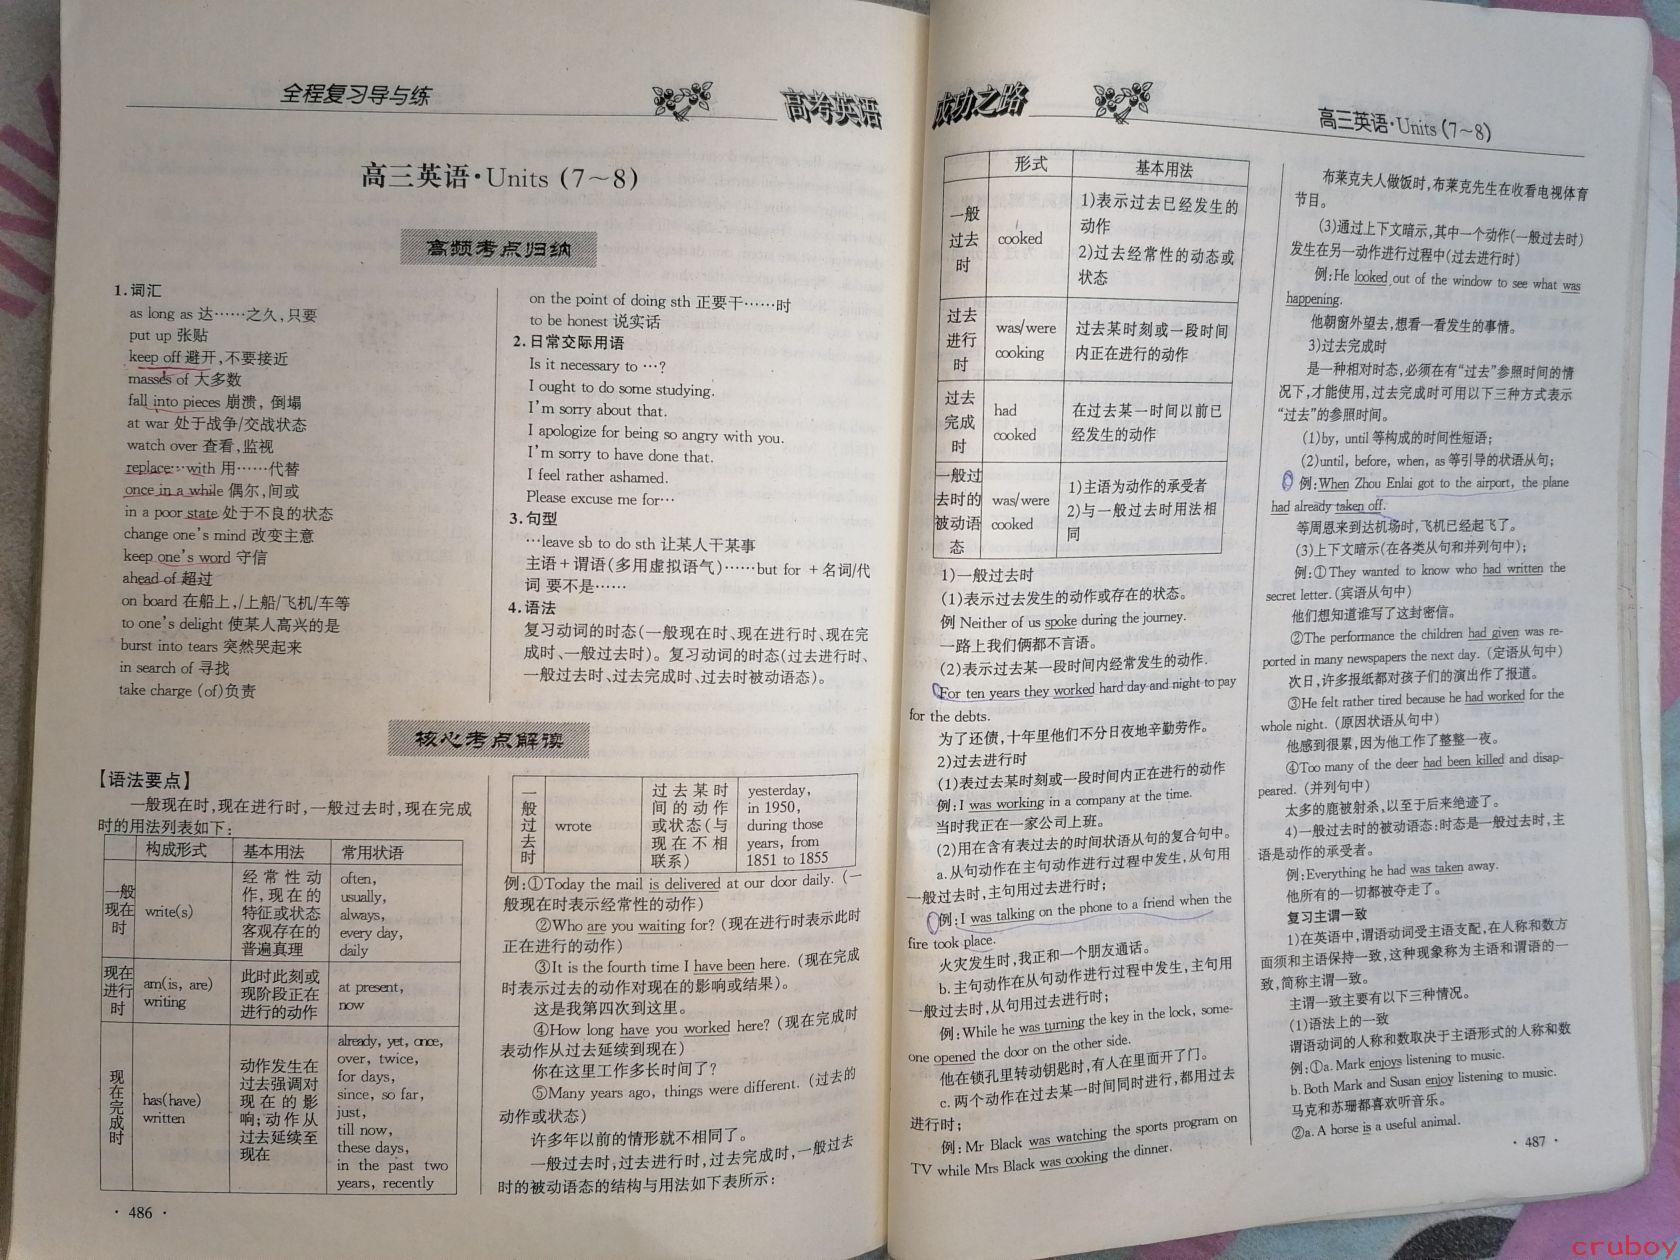 全程复习导与练
高考英语
高三英语·Units (7～8)
高频考点归纳
1.词汇
as long as 达……之久,只要
put up 张贴
keep off 避开,不要接近
masses of 大多数
fall into pieces 崩溃, 倒塌
at war 处于战争/交战状态
watch over 查看,监视
replace…with 用……代替
once in a while 偶尔,间或
in a poor state 处于不良的状态
change one's mind 改变主意
keep one's word 守信
ahead of 超过
on board 在船上,/上船/飞机/车等
to one's delight 使某人高兴的是
burst into tears 突然哭起来
in search of 寻找
take charge (of)负责
on the point of doing sth 正要干……时
to be honest 说实话
2.日常交际用语
Is it necessary to …?
I ought to do some studying.
I'm sorry about that.
I apologize for being so angry with you.
I'm sorry to have done that.
I feel rather ashamed.
Please excuse me for…
3.句型
…leave sb to do sth 让某人干某事
主语+谓语(多用虚拟语气)……but for +名词/代
词 要不是……
4.语法
复习动词的时态(一般现在时、现在进行时、现在完
成时、一般过去时)。复习动词的时态(过去进行时、
一般过去时、过去完成时、过去时被动语态)。
核心考点解读
【语法要点】
一般现在时,现在进行时,一般过去时,现在完成
时的用法列表如下:
构成形式 基本用法 常用状语
一般
现在
时
write(s)
经常性动
作,现在的
特征或状态
客观存在的
普遍真理
often,
usually,
always,
every day,
daily
现在
进行
时
am(is, are)
writing
此时此刻或
现阶段正在
进行的动作
at present,
now
现在完成时
has(have)
written
动作发生在
过去强调对
现在的影
响;动作从
过去延续至
现在
already, yet, once,
over, twice,
for days,
since, so far,
just,
till now,
these days,
in the past two
years, recently
一般过去时
wrote
过去某时
间的动作
或状态(与
现在不相
联系)
yesterday,
in 1950,
during those
years, from
1851 to 1855
例:①Today the mail is delivered at our door daily. (一
般现在时表示经常性的动作)
②Who are you waiting for? (现在进行时表示此时
正在进行的动作)
③It is the fourth time I have been here. (现在完成
时表示过去的动作对现在的影响或结果)。
这是我第四次到这里。
④How long have you worked here? (现在完成时
表动作从过去延续到现在)
你在这里工作多长时间了?
⑤Many years ago, things were different. (过去的
动作或状态)
许多年以前的情形就不相同了。
一般过去时,过去进行时,过去完成时,一般过去
时的被动语态的结构与用法如下表所示:
· 486 ·
成功之路
高三英语·Units (7～8)
形式 基本用法
一般
过去
时
cooked
1)表示过去已经发生的
动作
2)过去经常性的动态或
状态
过去
进行
时
was/were
cooking
过去某时刻或一段时间
内正在进行的动作
过去
完成
时
had
cooked
在过去某一时间以前已
经发生的动作
一般过
去时的
被动语
态
was/were
cooked
1)主语为动作的承受者
2)与一般过去时用法相
同
1)一般过去时
(1)表示过去发生的动作或存在的状态。
例 Neither of us spoke during the journey.
一路上我们俩都不言语。
(2)表示过去某一段时间内经常发生的动作.
For ten years they worked hard day and night to pay
for the debts.
为了还债,十年里他们不分日夜地辛勤劳作。
2)过去进行时
(1)表过去某时刻或一段时间内正在进行的动作
例:I was working in a company at the time.
当时我正在一家公司上班。
(2)用在含有表过去的时间状语从句的复合句中。
a.从句动作在主句动作进行过程中发生,从句用
一般过去时,主句用过去进行时;
例:I was talking on the phone to a friend when the
fire took place.
火灾发生时,我正和一个朋友通话。
b.主句动作在从句动作进行过程中发生,主句用
一般过去时,从句用过去进行时;
例:While he was turning the key in the lock, some-
one opened the door on the other side.
他在锁孔里转动钥匙时,有人在里面开了门。
c.两个动作在过去某一时间同时进行,都用过去
进行时;
例:Mr Black was watching the sports program on
TV while Mrs Black was cooking the dinner.
布莱克夫人做饭时,布莱克先生在收看电视体育
节目。
(3)通过上下文暗示,其中一个动作(一般过去时)
发生在另一动作进行过程中(过去进行时)
例:He looked out of the window to see what was
happening.
他朝窗外望去,想看一看发生的事情。
3)过去完成时
是一种相对时态,必须在有“过去”参照时间的情
况下,才能使用,过去完成时可用以下三种方式表示
“过去”的参照时间。
(1)by, until 等构成的时间性短语;
(2)until, before, when, as 等引导的状语从句;
例:When Zhou Enlai got to the airport, the plane
had already taken off.
等周恩来到达机场时,飞机已经起飞了。
(3)上下文暗示(在各类从句和并列句中);
例:①They wanted to know who had written the
secret letter.(宾语从句中)
他们想知道谁写了这封密信。
②The performance the children had given was re-
ported in many newspapers the next day. (定语从句中)
次日,许多报纸都对孩子们的演出作了报道。
③He felt rather tired because he had worked for the
whole night. (原因状语从句中)
他感到很累,因为他工作了整整一夜。
④Too many of the deer had been killed and disap-
peared. (并列句中)
太多的鹿被射杀,以至于后来绝迹了。
4)一般过去时的被动语态:时态是一般过去时,主
语是动作的承受者。
例:Everything he had was taken away.
他所有的一切都被夺走了。
复习主谓一致
1)在英语中,谓语动词受主语支配,在人称和数方
面须和主语保持一致,这种现象称为主语和谓语的一
致,简称主谓一致。
主谓一致主要有以下三种情况。
(1)语法上的一致
谓语动词的人称和数取决于主语形式的人称和数
例:①a. Mark enjoys listening to music.
b. Both Mark and Susan enjoy listening to music.
马克和苏珊都喜欢听音乐。
②a. A horse is a useful animal.
· 487 ·
cruboy